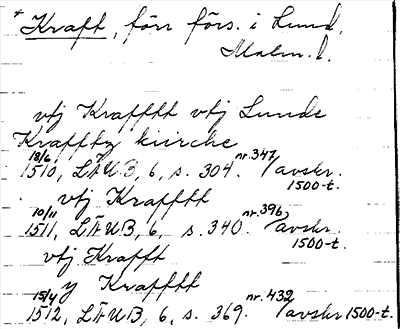 * Kraft, förr förs. i Lund,
Malm. l.
vtj Krafftt vtj Lunde
Krafftz kiirche
18/6 1510, LÄUB, 6, s. 304. nr. 347 / avskr. 1500-t.
vtj Krafftt
10/11 1511, LÄUB, 6, s. 340. nr. 396 / avskr. 1500-t.
vtj Krafft
y Krafftt
15/4 1512, LÄUB, 6, s. 369. nr. 432 / avskr 1500-t.